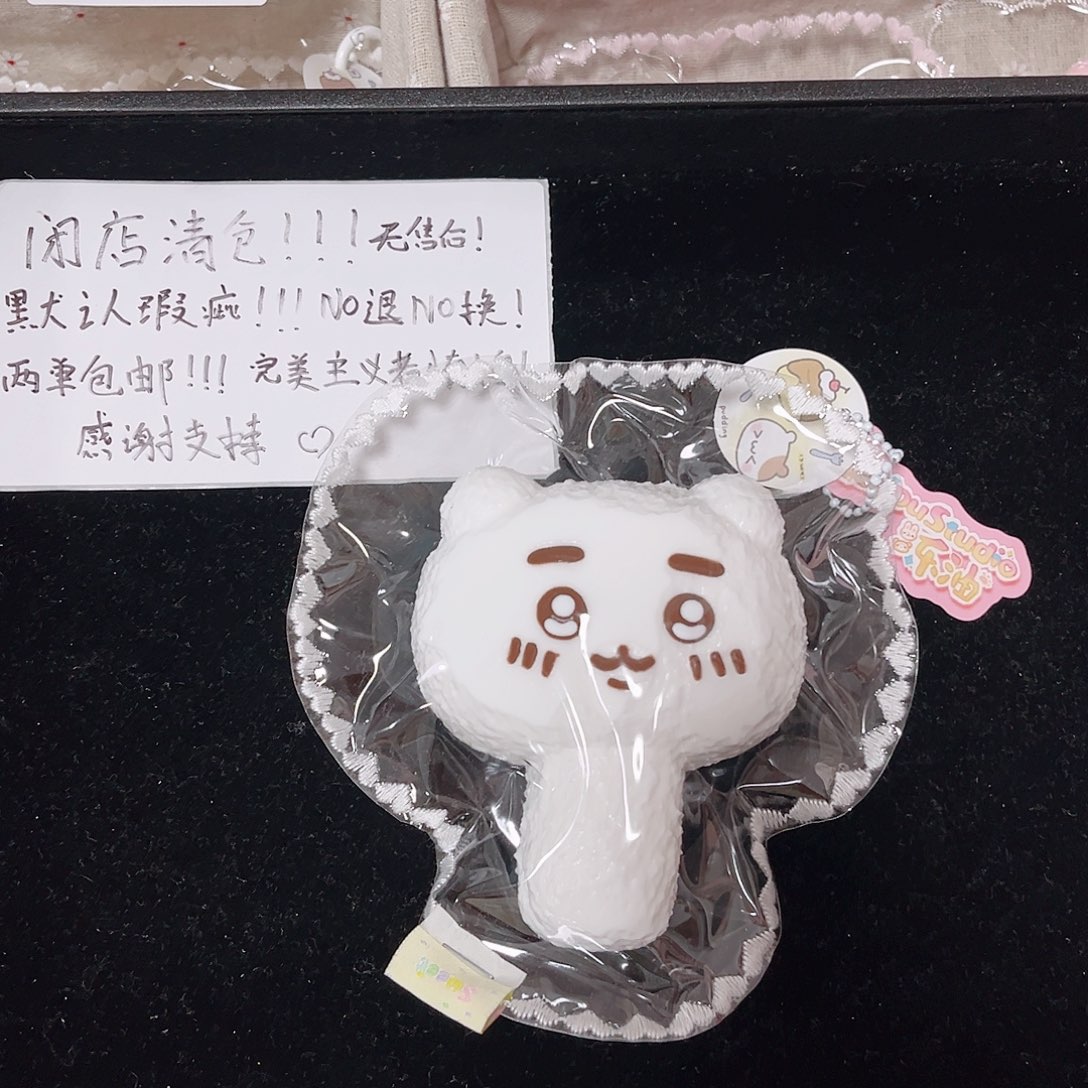 闭店清仓!!! 无售后!
黑犬认人瑕疵!!! NO退NO换!
两单包邮!!! 完美主义者
感谢支持 ♡
pudding
Studio
Sweet